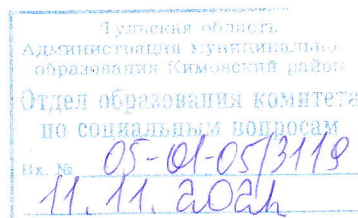 Тульская область
Администрация муниципального
образования Кимовский район
Отдел образования комитета
по социальным вопросам
Вх. № 05-01-05/3119
11.11.2021